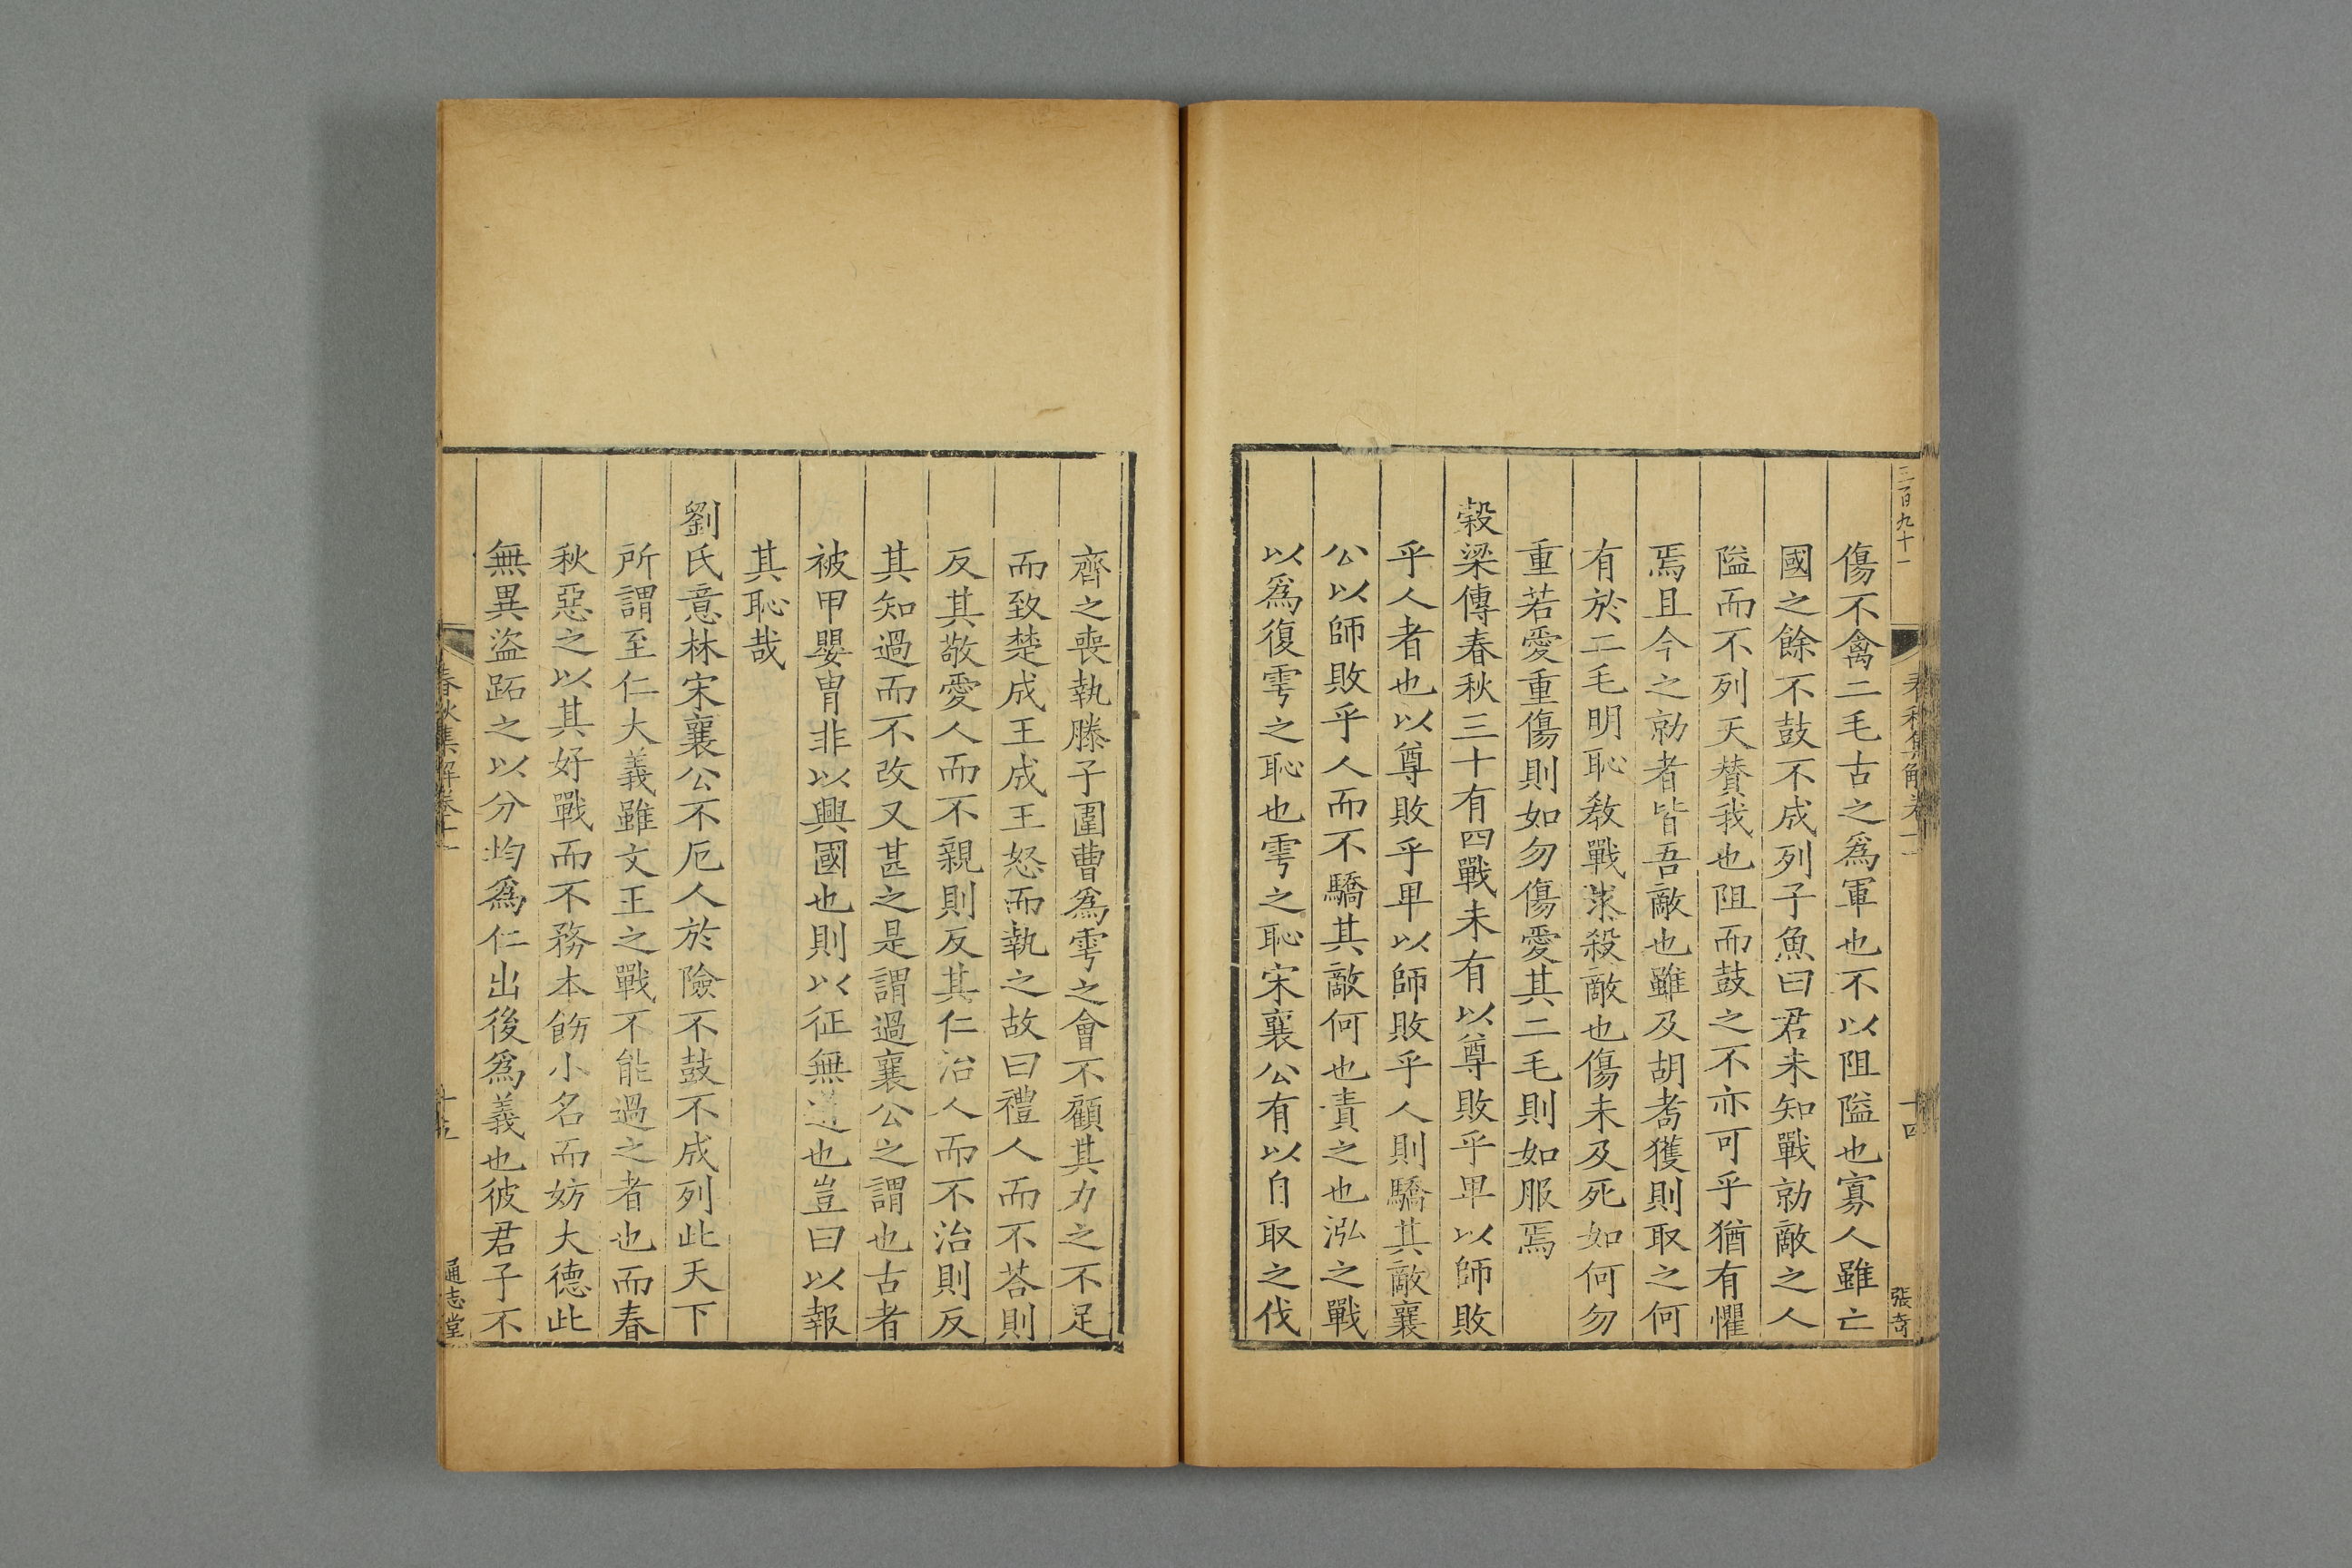 三百九十一
春秋集解卷十一
十四
張奇
傷不禽二毛古之爲軍也不以阻隘也寡人雖亡
國之餘不鼓不成列子魚曰君未知戰勍敵之人
隘而不列天賛我也阻而鼓之不亦可乎猶有懼
焉且今之勍者皆吾敵也雖及胡耈獲則取之何
有於二毛明恥教戰求殺敵也傷未及死如何勿
重若愛重傷則如勿傷愛其二毛則如服焉
穀梁傳春秋三十有四戰未有以尊敗乎卑以師敗
乎人者也以尊敗乎卑以師敗乎人則驕其敵襄
公以師敗乎人而不驕其敵何也責之也泓之戰
以爲復雩之恥也雩之恥宋襄公有以自取之伐
齊之喪執滕子圍曹爲雩之會不顧其力之不足
而致楚成王成王怒而執之故曰禮人而不荅則
反其敬愛人而不親則反其仁治人而不治則反
其知過而不改又甚之是謂過襄公之謂也古者
被甲嬰胄非以興國也則以征無道也豈曰以報
其恥哉
劉氏意林宋襄公不厄人於險不鼓不成列此天下
所謂至仁大義雖文王之戰不能過之者也而春
秋惡之以其好戰而不務本飭小名而妨大德此
無異盜跖之以分均爲仁出後爲義也彼君子不
春秋集解卷十一
十五
通志堂